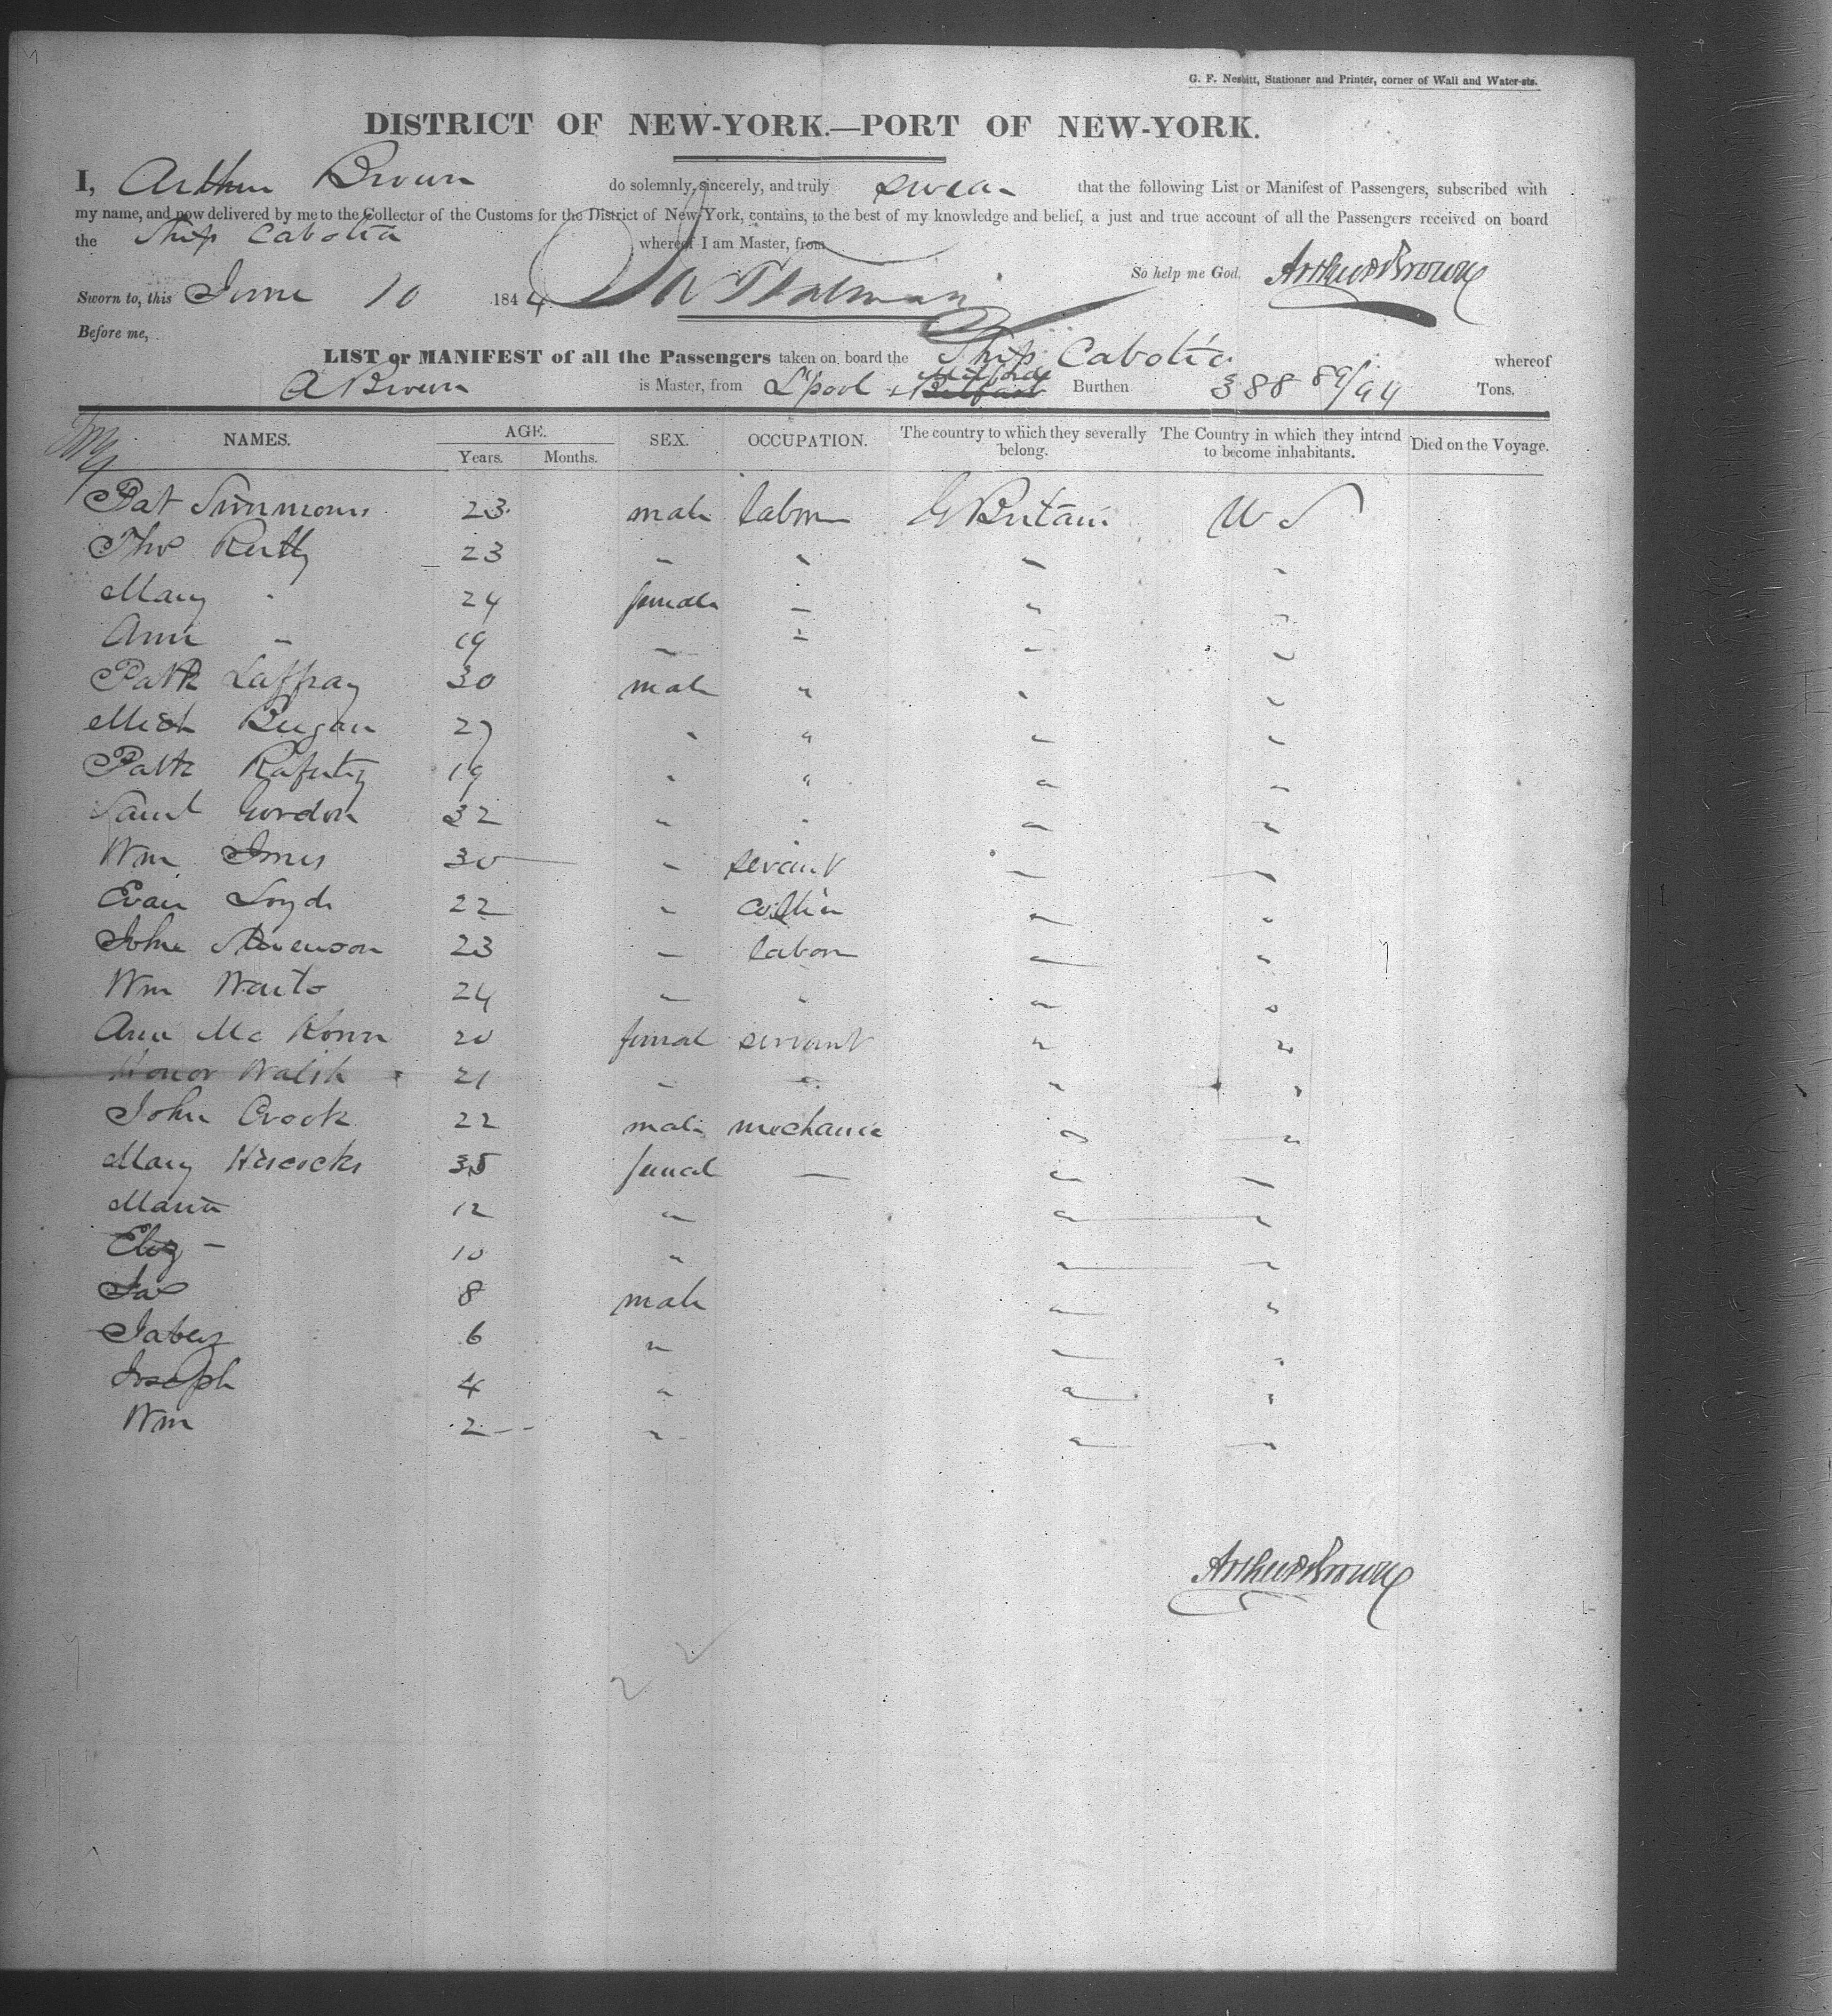 G. F. Nesbitt, Stationer and Printer, corner of Wall and Water-sts.
DISTRICT OF NEW-YORK.—PORT OF NEW-YORK.
I, Arthur Brown do solemnly, sincerely, and truly swear that the following List or Manifest of Passengers, subscribed with
my name, and now delivered by me to the Collector of the Customs for the District of New-York, contains, to the best of my knowledge and belief, a just and true account of all the Passengers received on board
the Ship Cabotia whereof I am Master, from
So help me God. Arthur Brown
Sworn to, this June 10 1844
Before me,
LIST or MANIFEST of all the Passengers taken on board the Ship Cabotia whereof
A Brown is Master, from L'pool Burthen 388 89/94 Tons.
NAMES. AGE. SEX. OCCUPATION. The country to which they severally belong. The Country in which they intend to become inhabitants. Died on the Voyage.
Years. Months.
Pat Simmons 23 male labor G Britain U S
Thos 23 " " " "
Mary " 24 female " " "
Ann " 19 " " " "
Patk Laffray 30 male " " "
Mich 27 " " " "
Patk Raferty 19 " " " "
Saml Gordon 32 " " " "
Wm 30 " servant " "
Evan Loyd 22 " " "
John Stevenson 23 " labor " "
Wm 24 " " " "
Ann Mc 20 femal servant " "
Honor Walsh 21 " " " "
John Crook 22 male mechanic " "
Mary Hiscocks 35 femal — " "
Maria 12 " " "
Eliz — 10 " " "
Jas 8 male " "
Jabez 6 " " "
Joseph 4 " " "
Wm 2 " " "
Arthur Brown